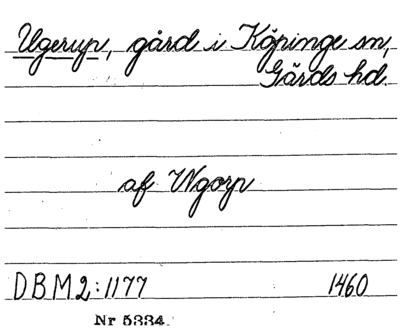 Ugerup, gård i Köpinge sn,
Gärds hd.
af Vgorp
DBM2:1177 1460
Nr 5334.